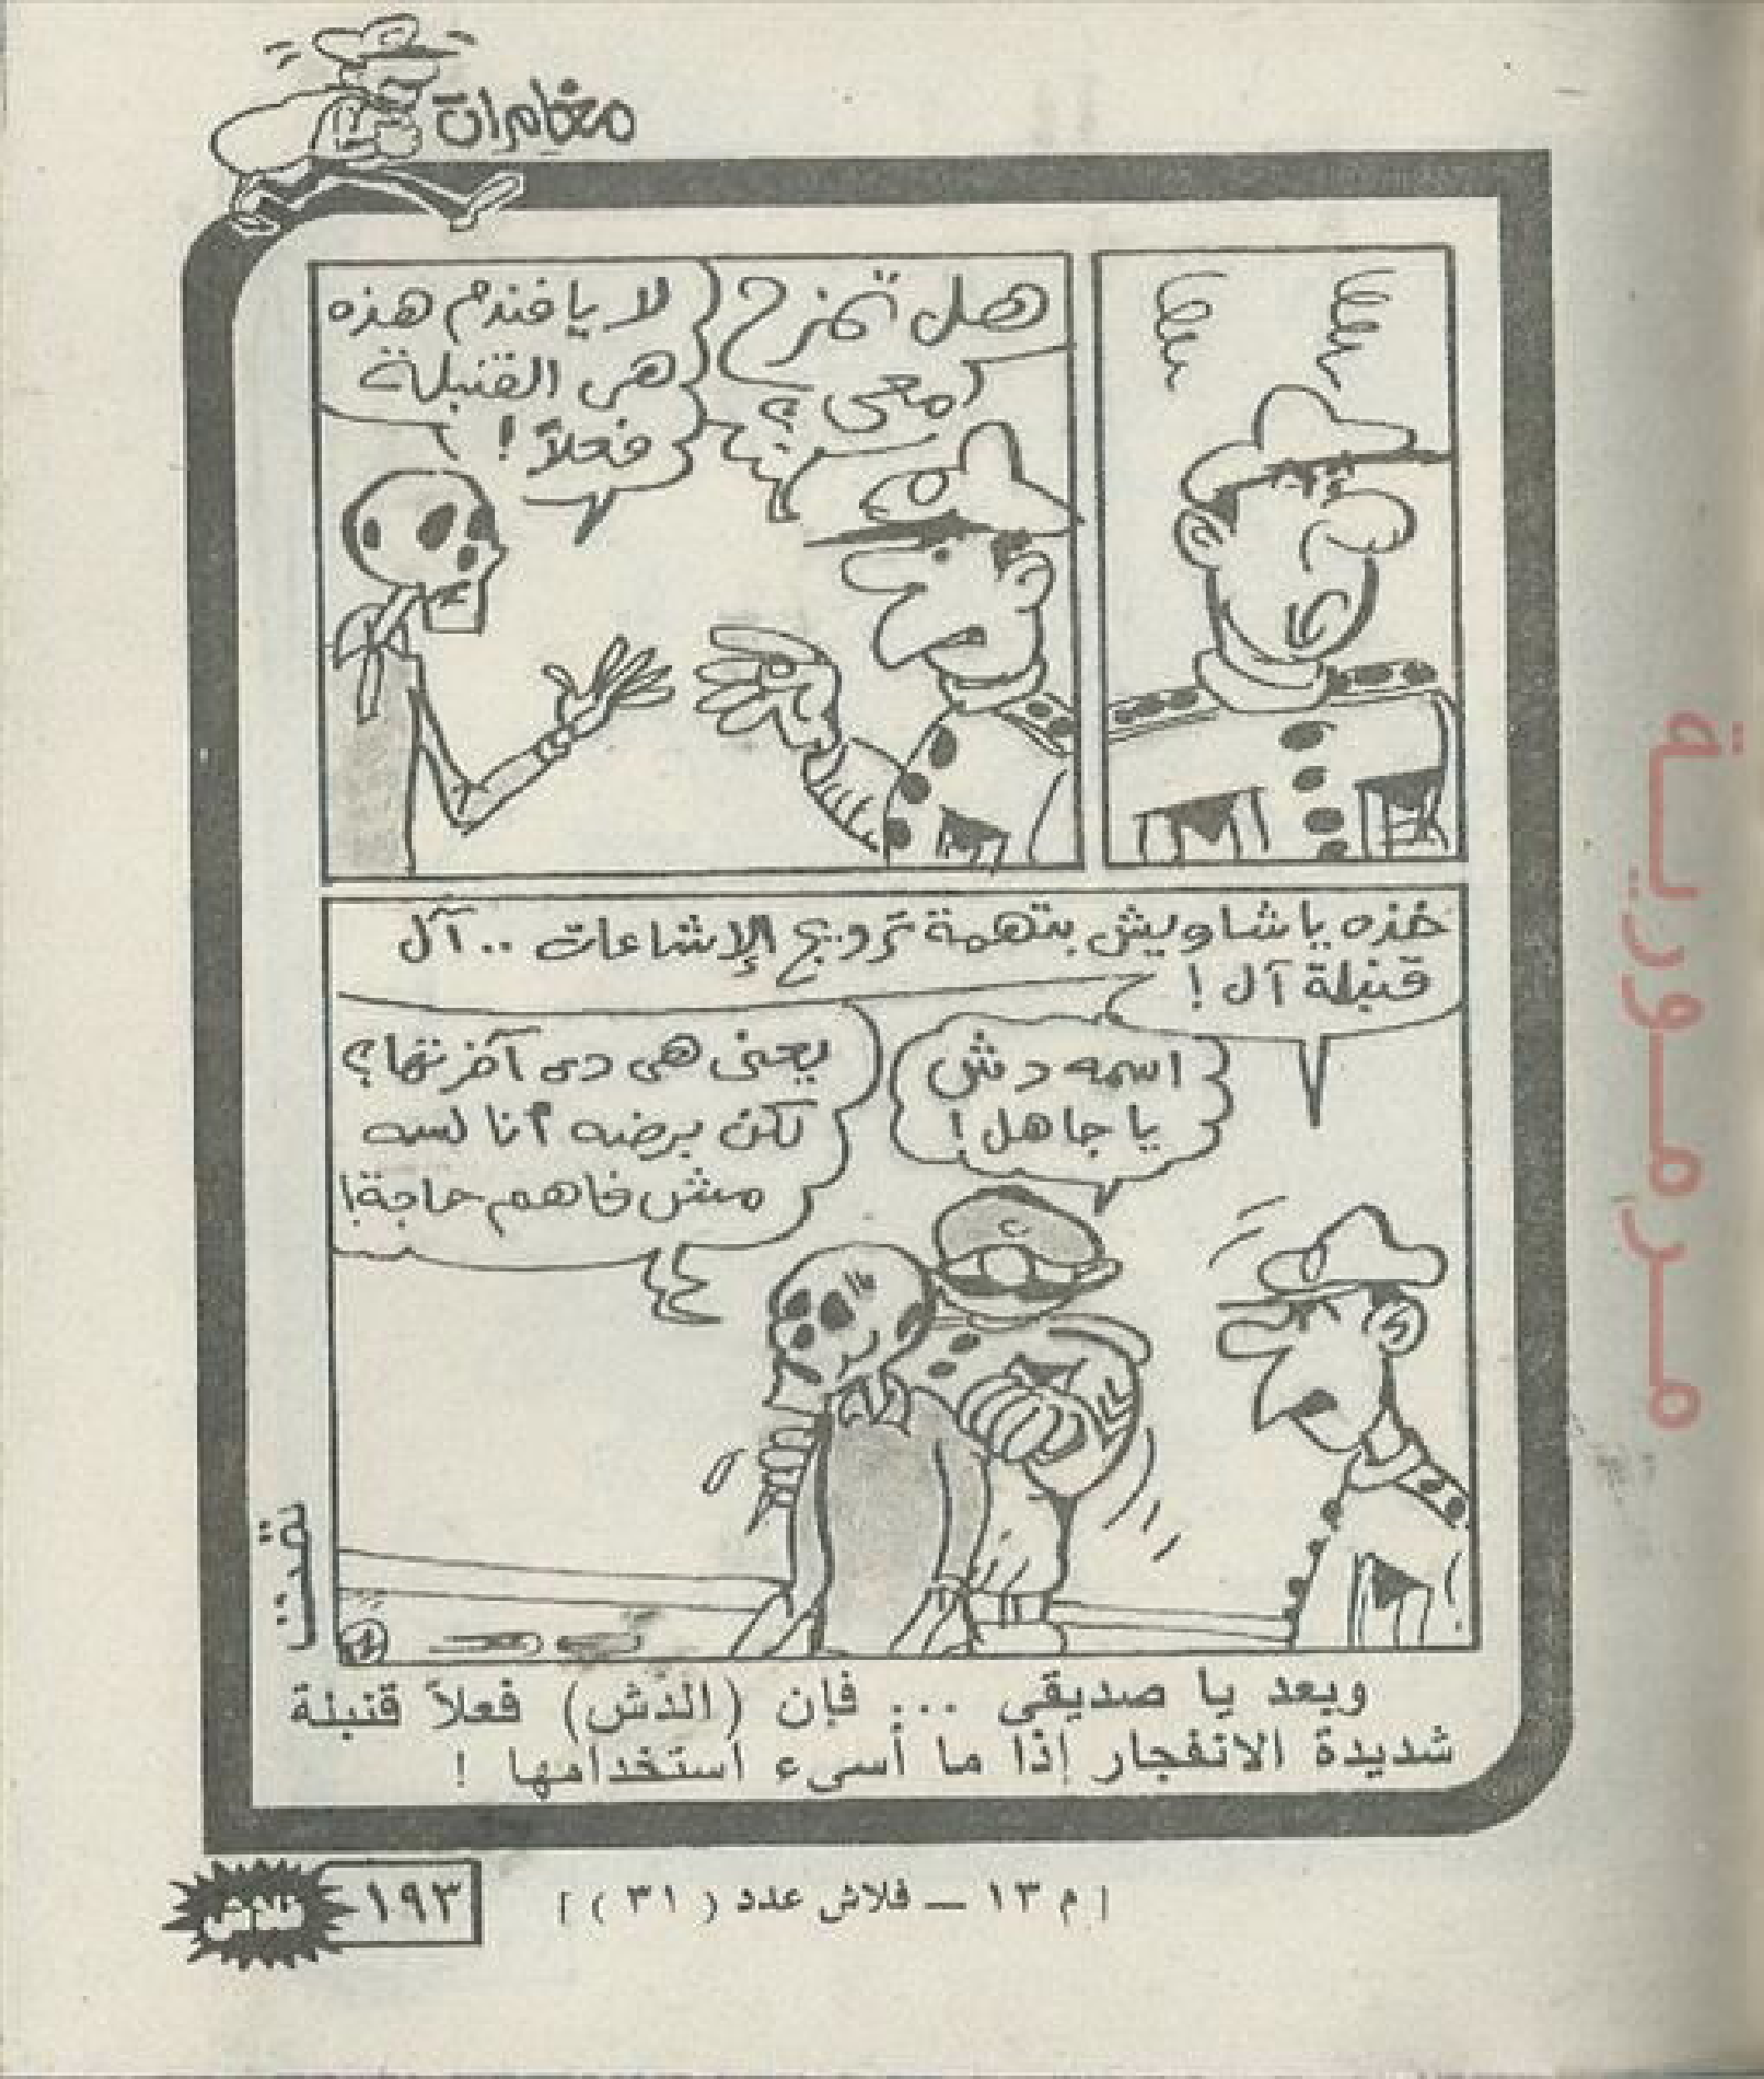 مغامرات
هل تمزح
معى ؟
لا يا فندم هذه
هى القنبلة
فعلاً !
خذه يا شاويش بتهمة ترويج الإشاعات .. آل
قنبلة آل !
اسمه دش
يا جاهل !
يعنى هى دى آخرتها ؟
لكن برضه أنا لسه
مش فاهم حاجة !
تمت
وبعد يا صديقى ... فإن (الدش) فعلاً قنبلة
شديدة الانفجار إذا ما أسىء استخدامها !
[ م ١٣ — فلاش عدد ( ٣١ ) ]
١٩٣
فلاش
مرمورية